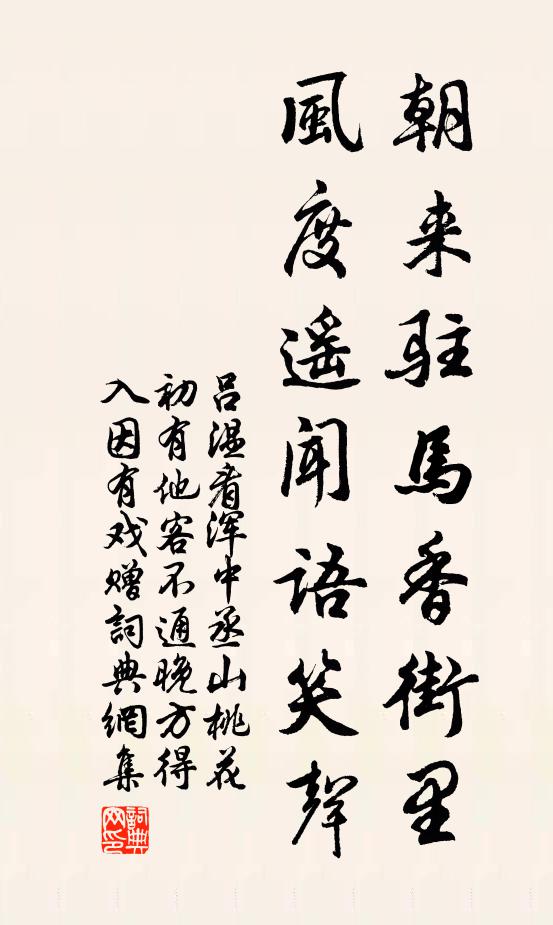 朝来駐馬香街里
風度遥聞語笑聲
吕温看浑中丞山桃花
初有他客不通晚方得
入因有戏赠詞典網集
詞典网印